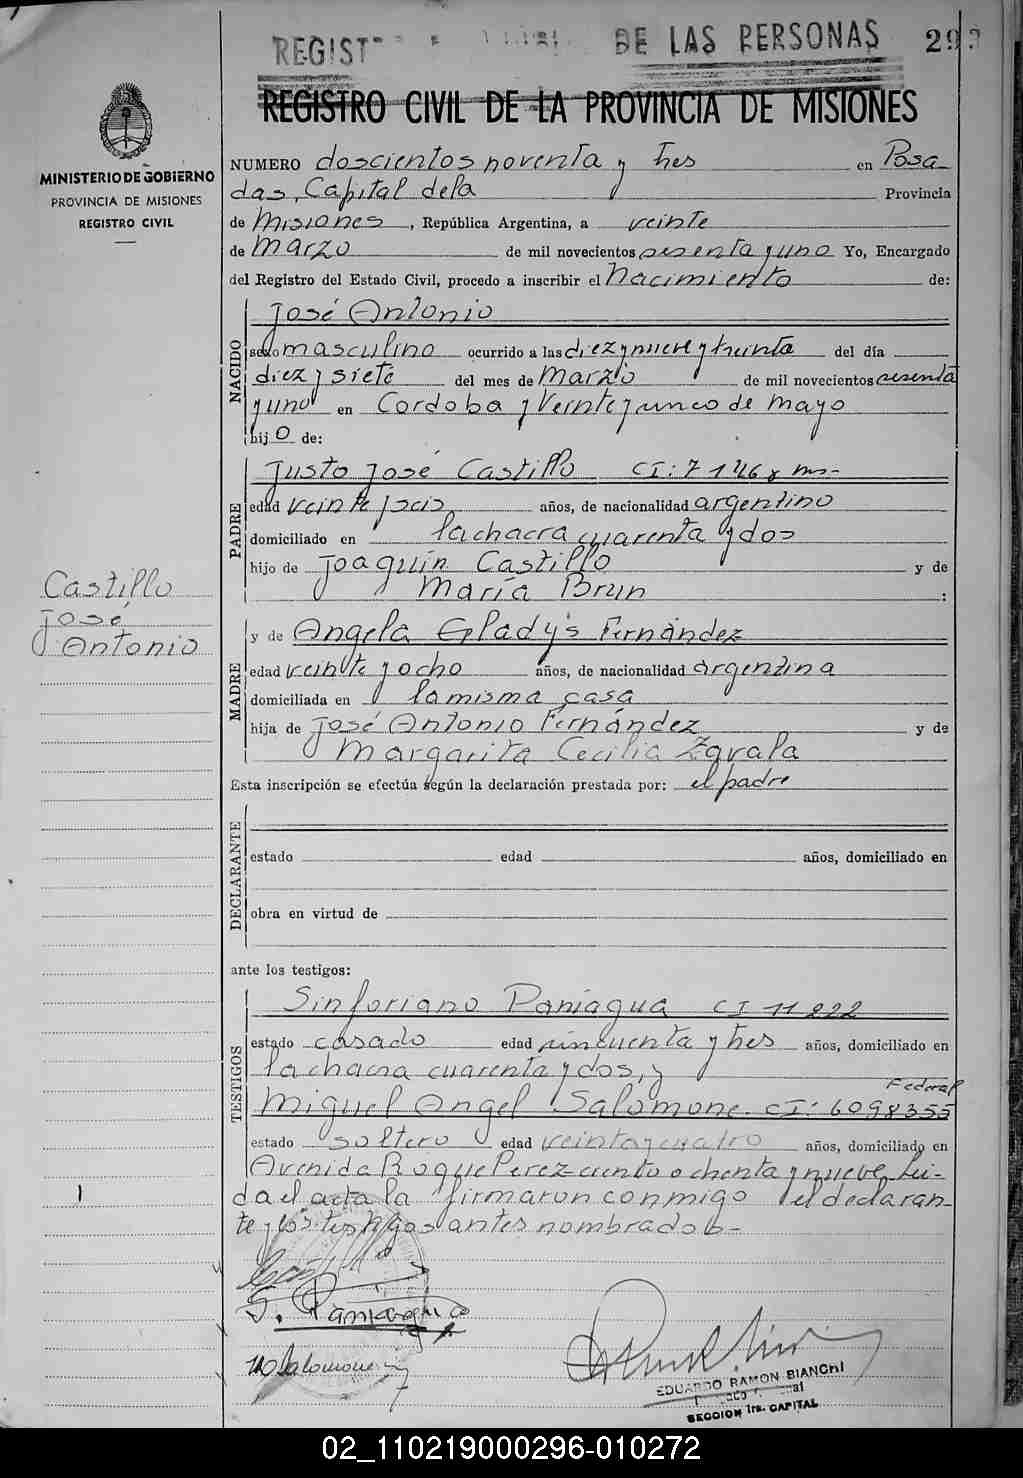 REGIST DE LAS PERSONAS 293
REGISTRO CIVIL DE LA PROVINCIA DE MISIONES
MINISTERIO DE GOBIERNO
PROVINCIA DE MISIONES
REGISTRO CIVIL
NUMERO doscientos noventa y tres en Posa-
das, Capital dela Provincia
de Misiones, República Argentina, a veinte
de Marzo de mil novecientos sesenta y uno Yo, Encargado
del Registro del Estado Civil, procedo a inscribir el nacimiento de:
NACIDO
José Antonio
sexo masculino ocurrido a las diez y nueve y treinta del día
diez y siete del mes de Marzo de mil novecientos sesenta
y uno en Cordoba y Veinte y cinco de Mayo
hijo de:
PADRE
Justo José Castillo CI: 7
edad veinte y seis años, de nacionalidad argentino
domiciliado en la chacra cuarenta y dos
hijo de Joaquín Castillo y de
María Brun :
Castillo
José
Antonio
MADRE
y de Angela Gladys Fernández
edad veinte y ocho años, de nacionalidad argentina
domiciliada en la misma casa
hija de José Antonio Fernández y de
Margarita Cecilia Zavala
Esta inscripción se efectúa según la declaración prestada por: el padre
DECLARANTE
estado edad años, domiciliado en
obra en virtud de
ante los testigos:
TESTIGOS
Sinforiano Paniagua CI 11222
estado casado edad cincuenta y tres años, domiciliado en
la chacra cuarenta y dos, y
Federal
Miguel Angel Salomone. CI: 6098355
estado soltero edad veinta y cuatro años, domiciliado en
Avenida Roque Perez ciento ochenta y nueve. Lei-
da el acta la firmaron conmigo el declaran-
te y los testigos antes nombrados-
S. Paniagua
MASalomone
EDUARDO RAMON BIANCHI
SECCION 1ra. CAPITAL
02_110219000296-010272